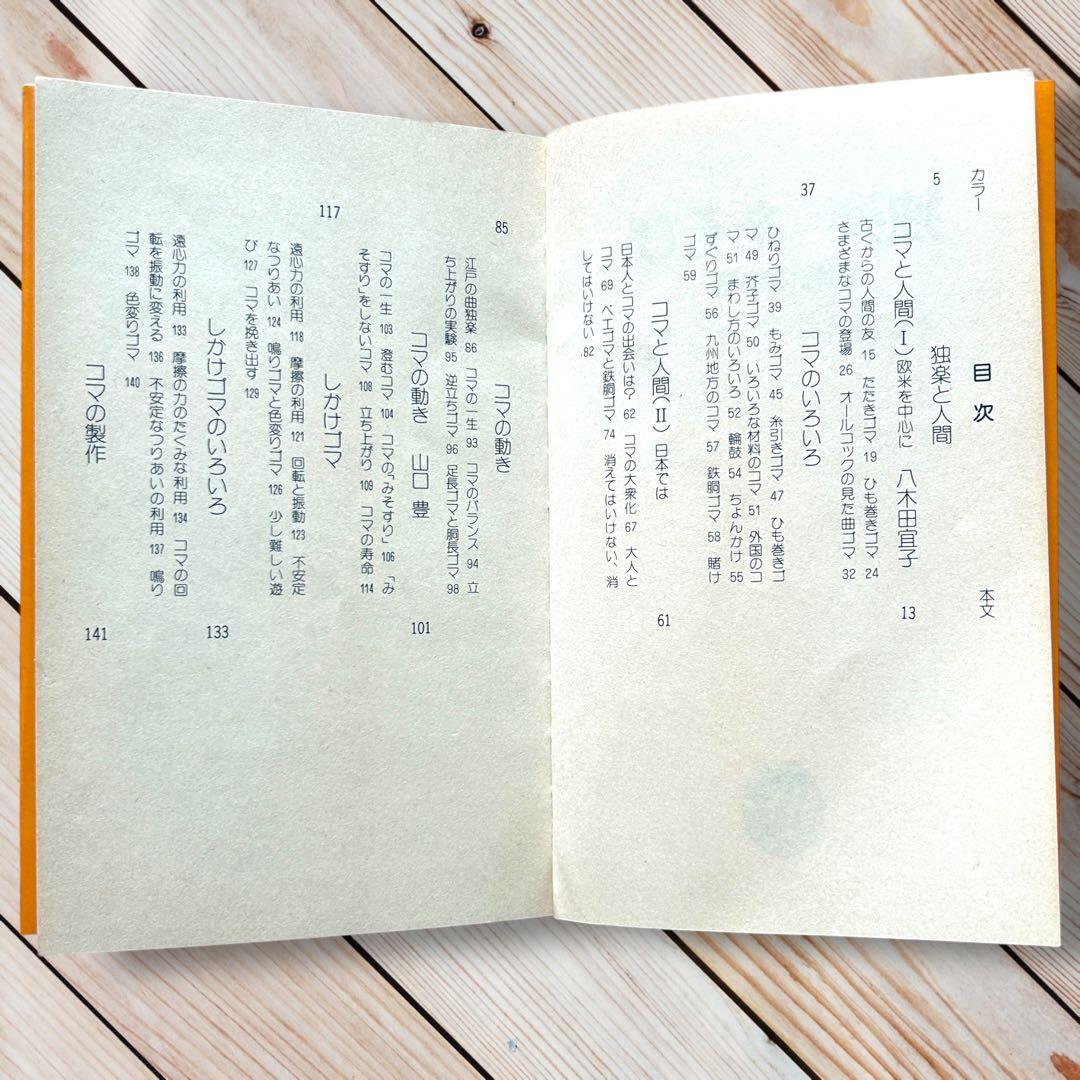 目次
カラー 本文
5 独楽と人間
コマと人間(Ⅰ) 欧米を中心に 八木田宜子 13
古くからの人間の友 15 たたきゴマ 19 ひも巻きゴマ 24
さまざまなコマの登場 26 オールコックの見た曲ゴマ 32
37 コマのいろいろ
ひねりゴマ 39 もみゴマ 45 糸引きゴマ 47 ひも巻きゴ
マ 49 芥子ゴマ 50 いろいろな材料のコマ 51 外国のコ
マ 51 まわし方のいろいろ 52 輪鼓 54 ちょんかけ 55
ずぐりゴマ 56 九州地方のコマ 57 鉄胴ゴマ 58 賭け
ゴマ 59
コマと人間(Ⅱ) 日本では 61
日本人とコマの出会いは? 62 コマの大衆化 67 大人と
コマ 69 ベエゴマと鉄胴ゴマ 74 消えてはいけない、消
してはいけない 82
85 コマの動き
江戸の曲独楽 86 コマの一生 93 コマのバランス 94 立
ち上がりの実験 95 逆立ちゴマ 96 足長ゴマと胴長ゴマ 98
コマの動き 山口 豊 101
コマの一生 103 澄むコマ 104 コマの「みそすり」 106 「み
そすり」をしないコマ 108 立ち上がり 109 コマの寿命 114
117 しかけゴマ
遠心力の利用 118 摩擦の利用 121 回転と振動 123 不安定
なつりあい 124 鳴りゴマと色変りゴマ 126 少し難しい遊
び 127 コマを挽き出す 129
しかけゴマのいろいろ 133
遠心力の利用 133 摩擦の力のたくみな利用 134 コマの回
転を振動に変える 136 不安定なつりあいの利用 137 鳴り
ゴマ 138 色変りゴマ 140
コマの製作 141